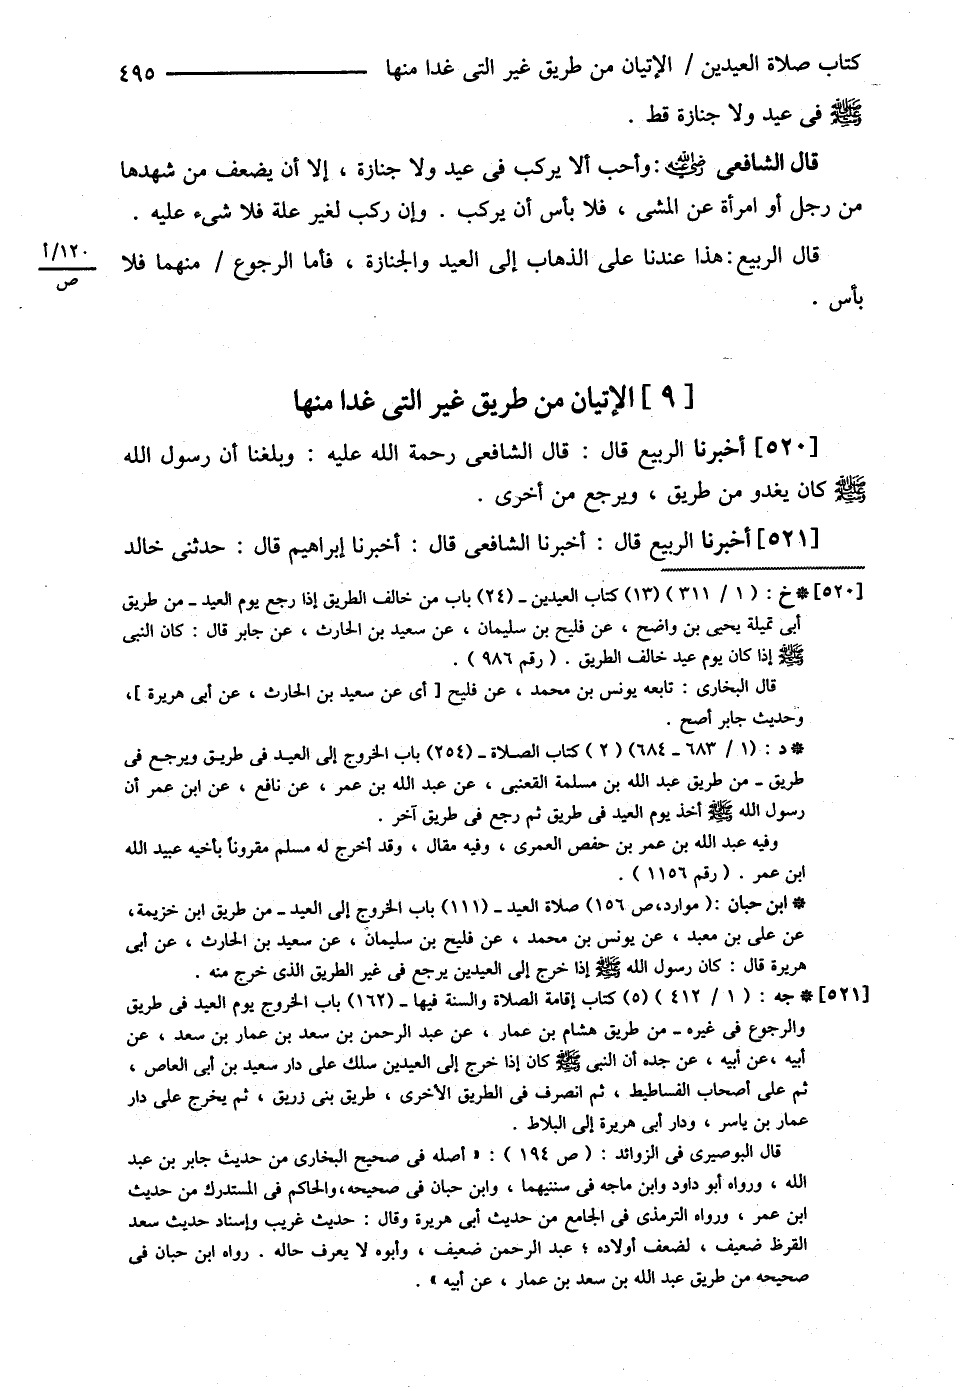 كتاب صلاة العيدين / الإتيان من طريق غير التى غدا منها ــــــــــــ ٤٩٥
ﷺ فى عيد ولا جنازة قط .
قال الشافعى رضي الله عنه : وأحب ألا يركب فى عيد ولا جنازة ، إلا أن يضعف من شهدها
من رجل أو امرأة عن المشى ، فلا بأس أن يركب . وإن ركب لغير علة فلا شىء عليه .
قال الربيع : هذا عندنا على الذهاب إلى العيد والجنازة ، فأما الرجوع / منهما فلا
١٢٠/أ
ص
بأس .
[ ٩ ] الإتيان من طريق غير التى غدا منها
[٥٢٠] أخبرنا الربيع قال : قال الشافعى رحمة الله عليه : وبلغنا أن رسول الله
ﷺ كان يغدو من طريق ، ويرجع من أخرى .
[٥٢١] أخبرنا الربيع قال : أخبرنا الشافعى قال : أخبرنا إبراهيم قال : حدثنى خالد
[٥٢٠] * خ : ( ١ / ٣١١ ) (١٣) كتاب العيدين ـ (٢٤) باب من خالف الطريق إذا رجع يوم العيد ـ من طريق
أبى تميلة يحيى بن واضح ، عن فليح بن سليمان ، عن سعيد بن الحارث ، عن جابر قال : كان النبى
ﷺ إذا كان يوم عيد خالف الطريق . ( رقم ٩٨٦ ) .
قال البخارى : تابعه يونس بن محمد ، عن فليح [ أى عن سعيد بن الحارث ، عن أبى هريرة ]،
وحديث جابر أصح .
* د : (١ / ٦٨٣ ـ ٦٨٤) ( ٢ ) كتاب الصلاة ـ (٢٥٤) باب الخروج إلى العيد فى طريق ويرجع فى
طريق ـ من طريق عبد الله بن مسلمة القعنبى ، عن عبد الله بن عمر ، عن نافع ، عن ابن عمر أن
رسول الله ﷺ أخذ يوم العيد فى طريق ثم رجع فى طريق آخر .
وفيه عبد الله بن عمر بن حفص العمرى ، وفيه مقال ، وقد أخرج له مسلم مقروناً بأخيه عبيد الله
ابن عمر . ( رقم ١١٥٦ ) .
* ابن حبان : ( موارد،ص ١٥٦) صلاة العيد ـ (١١١) باب الخروج إلى العيد ـ من طريق ابن خزيمة،
عن على بن معبد ، عن يونس بن محمد ، عن فليح بن سليمان ، عن سعيد بن الحارث ، عن أبى
هريرة قال : كان رسول الله ﷺ إذا خرج إلى العيدين يرجع فى غير الطريق الذى خرج منه .
[٥٢١] * جه : ( ١ / ٤١٢ ) (٥) كتاب إقامة الصلاة والسنة فيها ـ (١٦٢) باب الخروج يوم العيد فى طريق
والرجوع فى غيره ـ من طريق هشام بن عمار ، عن عبد الرحمن بن سعد بن عمار بن سعد ، عن
أبيه ،عن أبيه ، عن جده أن النبى ﷺ كان إذا خرج إلى العيدين سلك على دار سعيد بن أبى العاص ،
ثم على أصحاب الفساطيط ، ثم انصرف فى الطريق الأخرى ، طريق بنى زريق ، ثم يخرج على دار
عمار بن ياسر ، ودار أبى هريرة إلى البلاط .
قال البوصيرى فى الزوائد : ( ص ١٩٤ ) : « أصله فى صحيح البخارى من حديث جابر بن عبد
الله ، ورواه أبو داود وابن ماجه فى سننيهما ، وابن حبان فى صحيحه،والحاكم فى المستدرك من حديث
ابن عمر ، ورواه الترمذى فى الجامع من حديث أبى هريرة وقال : حديث غريب وإسناد حديث سعد
القرظ ضعيف ، لضعف أولاده ؛ عبد الرحمن ضعيف ، وأبوه لا يعرف حاله . رواه ابن حبان فى
صحيحه من طريق عبد الله بن سعد بن عمار ، عن أبيه » .